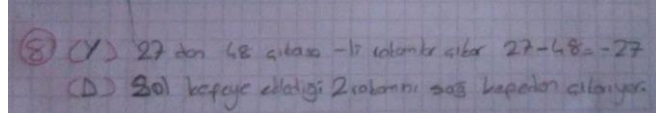 ⑧ (Y) 27 den 48 çıkarsa -li rakamlar çıkar 27-48=-27
(D) Sol kefeye eklediği 2 rakamını sağ kefeden çıkarıyor.